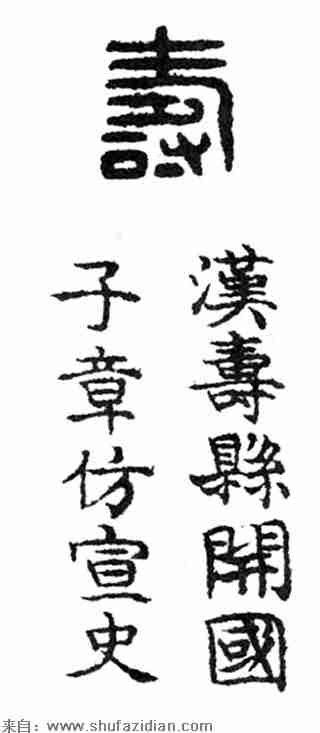 壽
漢壽縣開國
子章仿宣史
来自：www.shufazidian.com